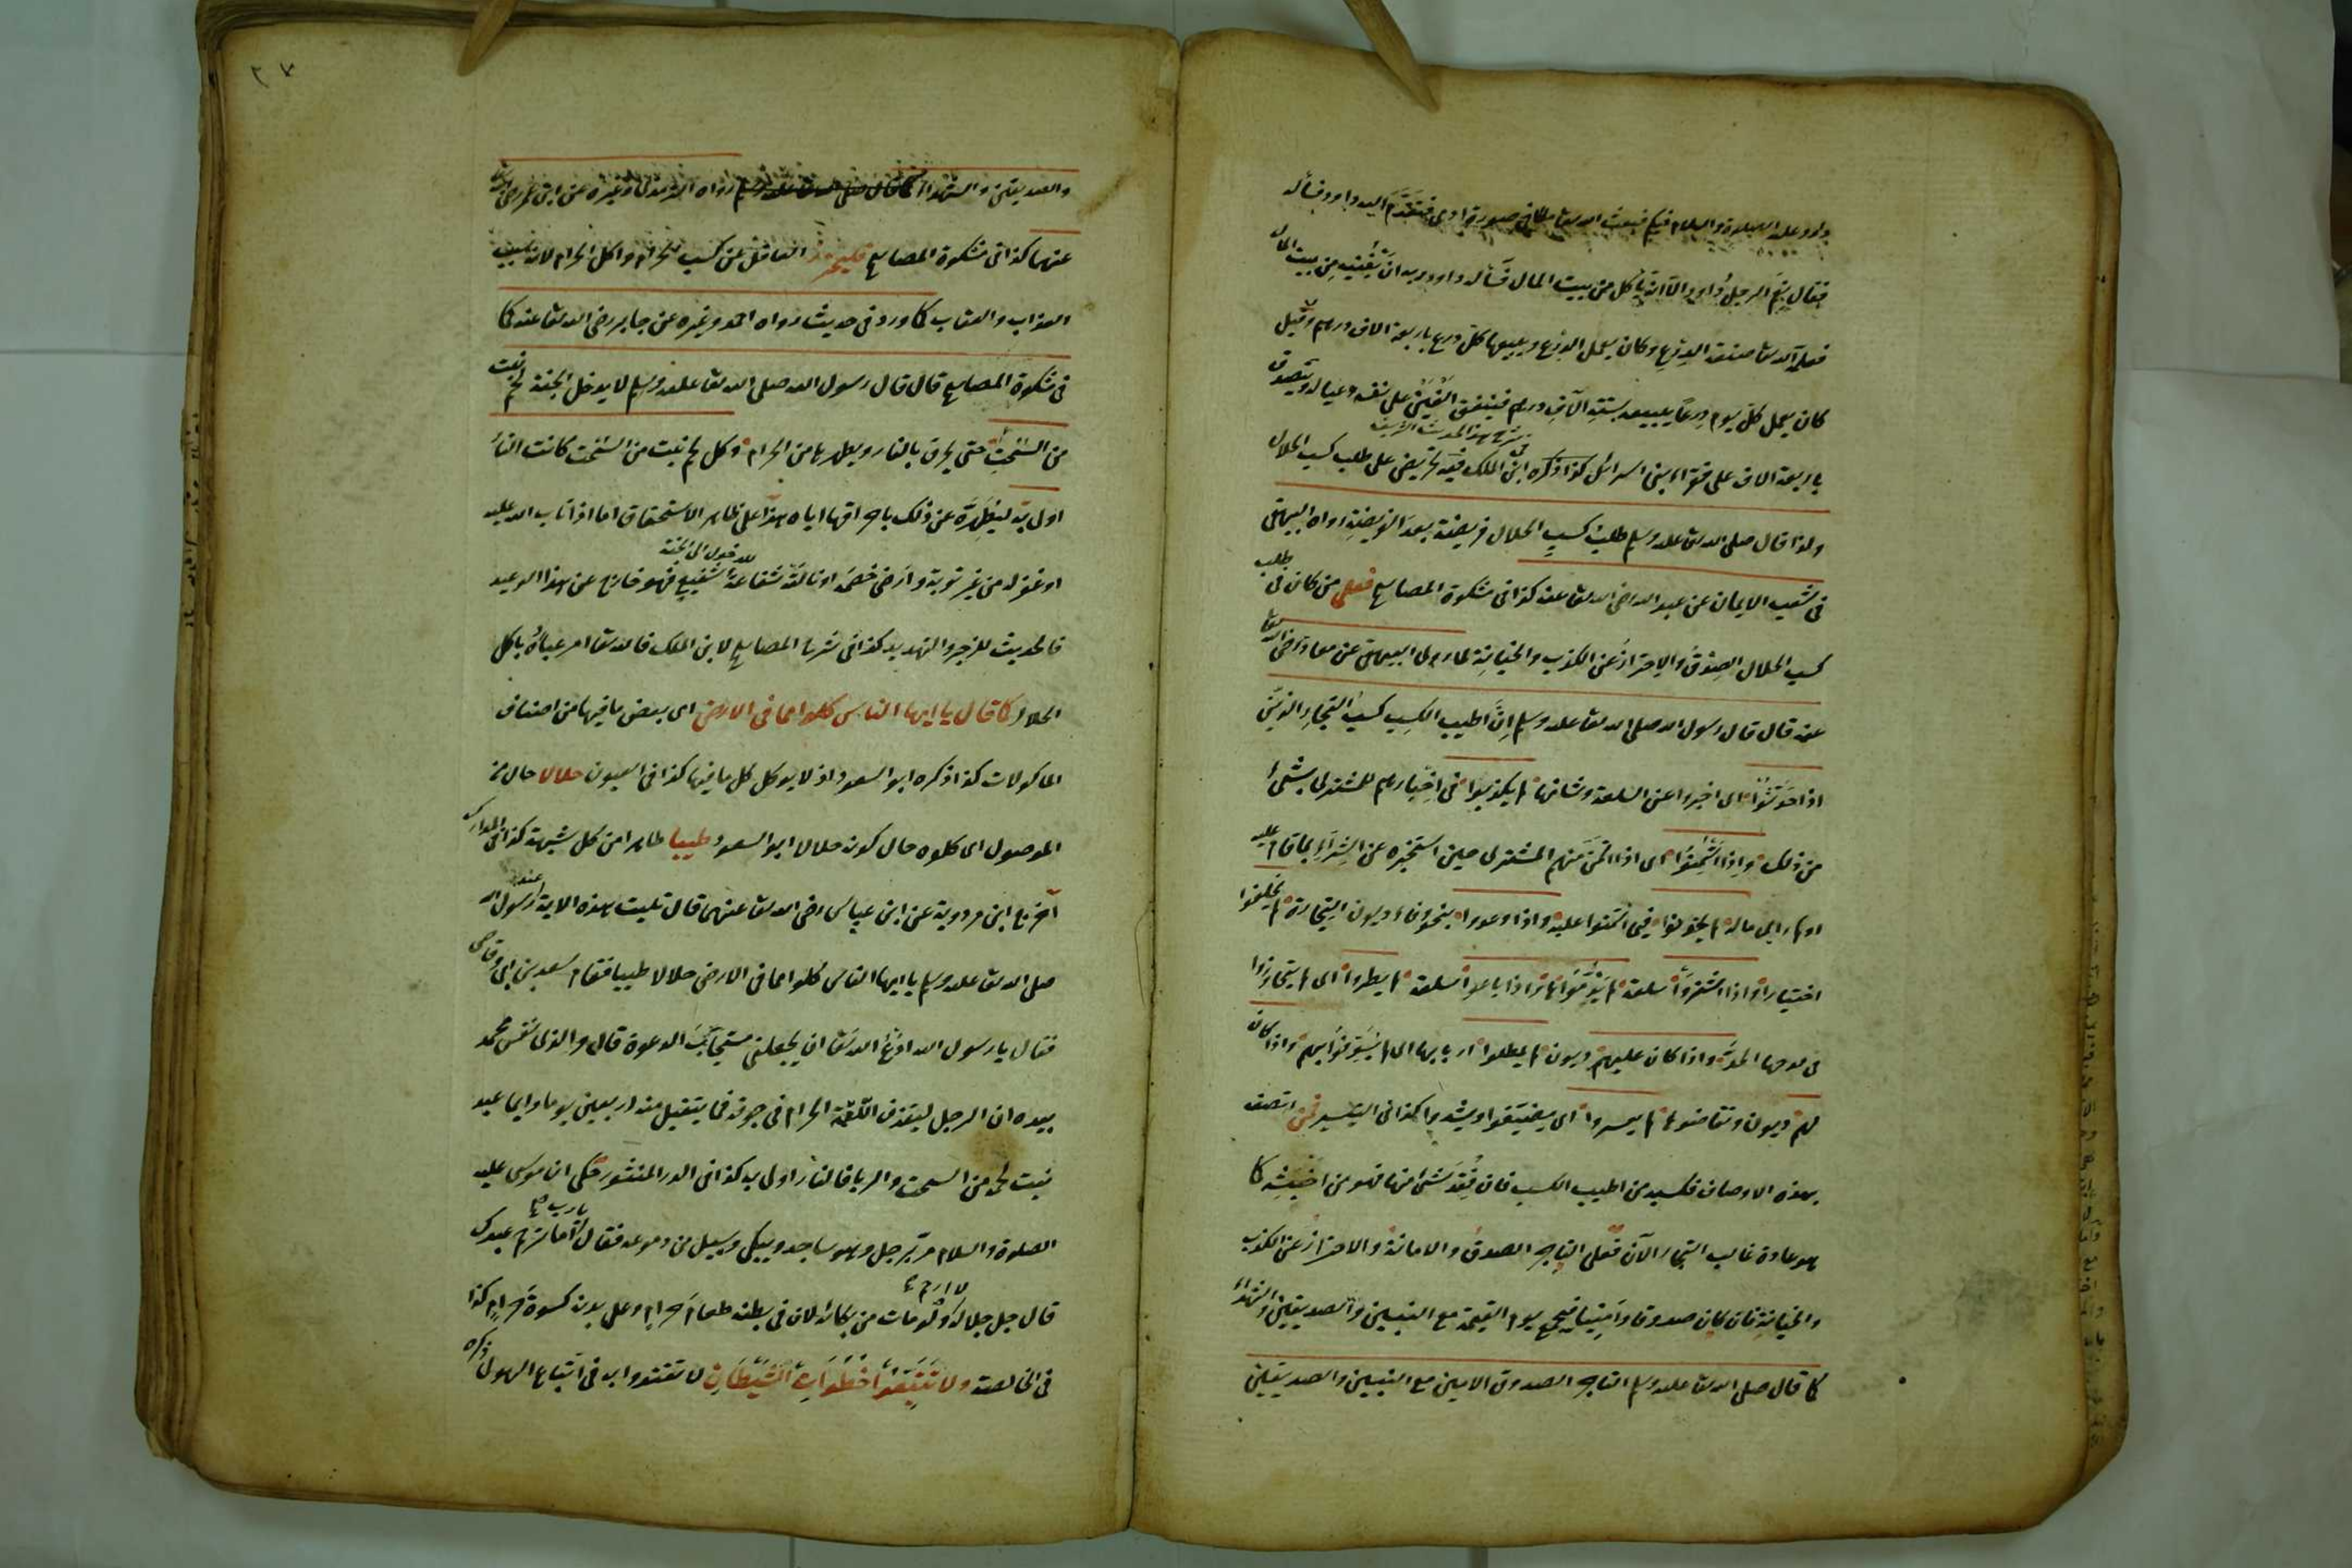 داود عليه الصلوة والسلام فيكم فبعث الله تعا ملكا في صورة ادمى فتقدم اليه داود فسأله
فقال نعم الرجل داود الا انه يأكل من بيت المال فسأل داود ربه ان يغنيه من بيت المال
فعلمه الله تعا صنعة الدرع وكان يعمل الدرع ويبيعها كل درع باربعة الاف درهم وقيل
كان يعمل كل يوم درعا يبيعه بستة آلاف درهم فينفق الفين على نفسه وعياله ويتصدق
باربعة الاف على فقراء بنى اسرائل كذا ذكره ابن الملك في شرح هذا الحديث الشريف فيه تحريض على طلب كسب الحلال
ولذا قال صلى الله تعا عليه وسلم طلب كسب الحلال فريضة بعد الفريضة رواه البيهقى
فى شعب الايمان عن عبد الله رضى الله تعا عنه كذا فى مشكوة المصابيح فعلى من كان فى طلب
كسب الحلال الصدق والاحتراز عن الكذب والخيانة لما روى البيهقى عن معاذ رضى الله تعا
عنه قال قال رسول الله صلى الله تعا عليه وسلم ان اطيب الكسب كسب التجار الذين
اذا حدثوا اى اخبروا عن السلعة وشانها لم يكذبوا فى اخبارهم للمشترى بشئ
من ذلك واذا ائتمنوا اى اذا ائتمن منهم المشترى حين استخبره عن الشراء بما قام عليه
او رأى ماله لم يخونوا فيما ائتمنوا عليه واذا وعدوا بنحو وفاء ديون التجارة لم يخلفوا
اختيارا واذا اشتروا سلعة لم يذموا واذا باعوا سلعة لم يطروا اى لم يتجاوزوا
فى مدحها الحد واذا كان عليهم ديون لم يمطلوا اربابها اى لم يسوفوا بهم واذا كان
لهم ديون وتقاضوها لم يعسروا اى يضيقوا ويشددوا كذا فى التيسير فمن اتصف
بهذه الاوصاف فكسبه من اطيب الكسب فان فقد شئ منها فهو من اخبثه كما
هو عادة غالب التجار الآن فعلى التاجر الصدق والامانة والاحتراز عن الكذب
والخيانة فان كان صدوقا وامينا فيجمع يوم القيمة مع النبيين والصديقين والشهداء
كما قال صلى الله تعا عليه وسلم التاجر الصدوق الامين مع النبيين والصديقين
٢٧
والصديقين والشهداء رواه الترمذى وغيره عن ابن عمر رضى الله تعا
عنهما كذا فى مشكوة المصابيح فليحترز العاقل عن كسب الحرام واكل الحرام لانه سبب
العذاب والعقاب كما ورد فى حديث رواه احمد وغيره عن جابر رضى الله تعا عنه كما
فى مشكوة المصابيح قال قال رسول الله صلى الله تعا عليه وسلم لا يدخل الجنة لحم نبت
من السحت حتى يحرق بالنار ويطهر بها من الحرام وكل لحم نبت من السحت كانت النار
اولى به ليطهره عن ذلك باحراقها اياه هذا على ظاهر الاستحقاق اما اذا تاب الله عليه
او غفر له من غير توبة وارضى خصمه او نالته شفاعة شفيع للدخول الى الجنة فهو خارج عن هذا الوعيد
فالحديث للزجر والتهديد كذا فى شرح المصابيح لابن الملك فالله تعا امر عباده باكل
الحلال كما قال يا ايها الناس كلوا مما فى الارض اى بعض ما فيها من اصناف
الماكولات كذا ذكره ابو السعود اذ لا يوكل كل ما فيها كذا فى العيون حلالا حال من
الموصول اى كلوه حال كونه حلالا ابو السعود طيبا طاهرا من كل شبهة كذا فى المدارك
اخرج ابن مردوية عن ابن عباس رضى الله تعا عنهما قال تليت هذه الاية عند رسول الله
صلى الله تعا عليه وسلم يا ايها الناس كلوا مما فى الارض حلالا طيبا فقام سعد بن ابى وقاص
فقال يا رسول الله ادع الله تعا ان يجعلنى مستجاب الدعوة قال والذى نفس محمد
بيده ان الرجل ليقذف اللقمة الحرام فى جوفه فما يتقبل منه اربعين يوما وايما عبد
نبت لحمه من السحت والربا فالنار اولى به كذا فى الدر المنثور حكى ان موسى عليه
الصلوة والسلام مر برجل وهو ساجد ويبكى ويسيل من دموعه فقال يا رب اما ترحم عبدك
قال جل جلاله لا ارحم ولو مات من بكائه لان فى بطنه طعام حرام وعلى بدنه كسوة حرام كذا
فى الخالصة ولا تتبعوا خطوات الشيطان لا تقتدوا به فى اتباع الهوى ذكره